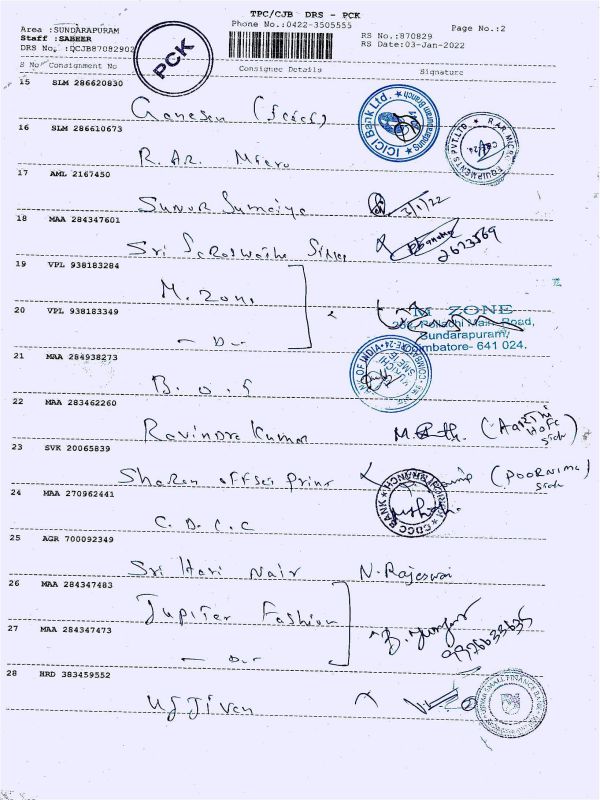 TPC/CJB DRS - PCK
Area :SUNDARAPURAM
Phone No.:0422-3505555
Page No.:2
Staff :SABEER
RS No.:870829
DRS No. :QCJB87082902
RS Date:03-Jan-2022
PCK
S No Consignment No
Consignee Details
Signature
15 SLM 286620830
Ganesan (Icici)
ICICI Bank Ltd.
16 SLM 286610673
R. AR. Micro
R.AR MICRO EQUIPMENTS PVT.LTD.
17 AML 2167450
Sunur Sumaiya
3/1/22
18 MAA 284347601
Sri Saraswathi
2623569
19 VPL 938183284
M. Zone
20 VPL 938183349
- Do -
M ZONE
Pollachi Main Road,
Sundarapuram,
Coimbatore- 641 024.
21 MAA 284938273
B. O. I
BANK OF INDIA
22 MAA 283462260
Ravindra Kumar
23 SVK 20065839
Sharon offset Print
(POORNIMA)
24 MAA 270962441
C. D. C. C
CDCC BANK
25 AGR 700092349
Sri Hari Nair
N. Rajeswari
26 MAA 284347483
Jupiter Fashion
27 MAA 284347473
- Do -
28 HRD 383459552
Ujjivan
UJJIVAN SMALL FINANCE BANK